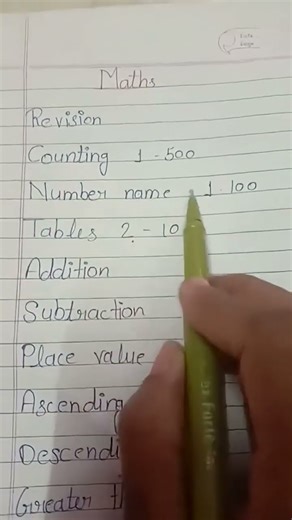 Maths
Revision
Counting 1-500
Number name 1-100
Tables 2-10
Addition
Subtraction
Place value
Ascending
Descendi
Greater